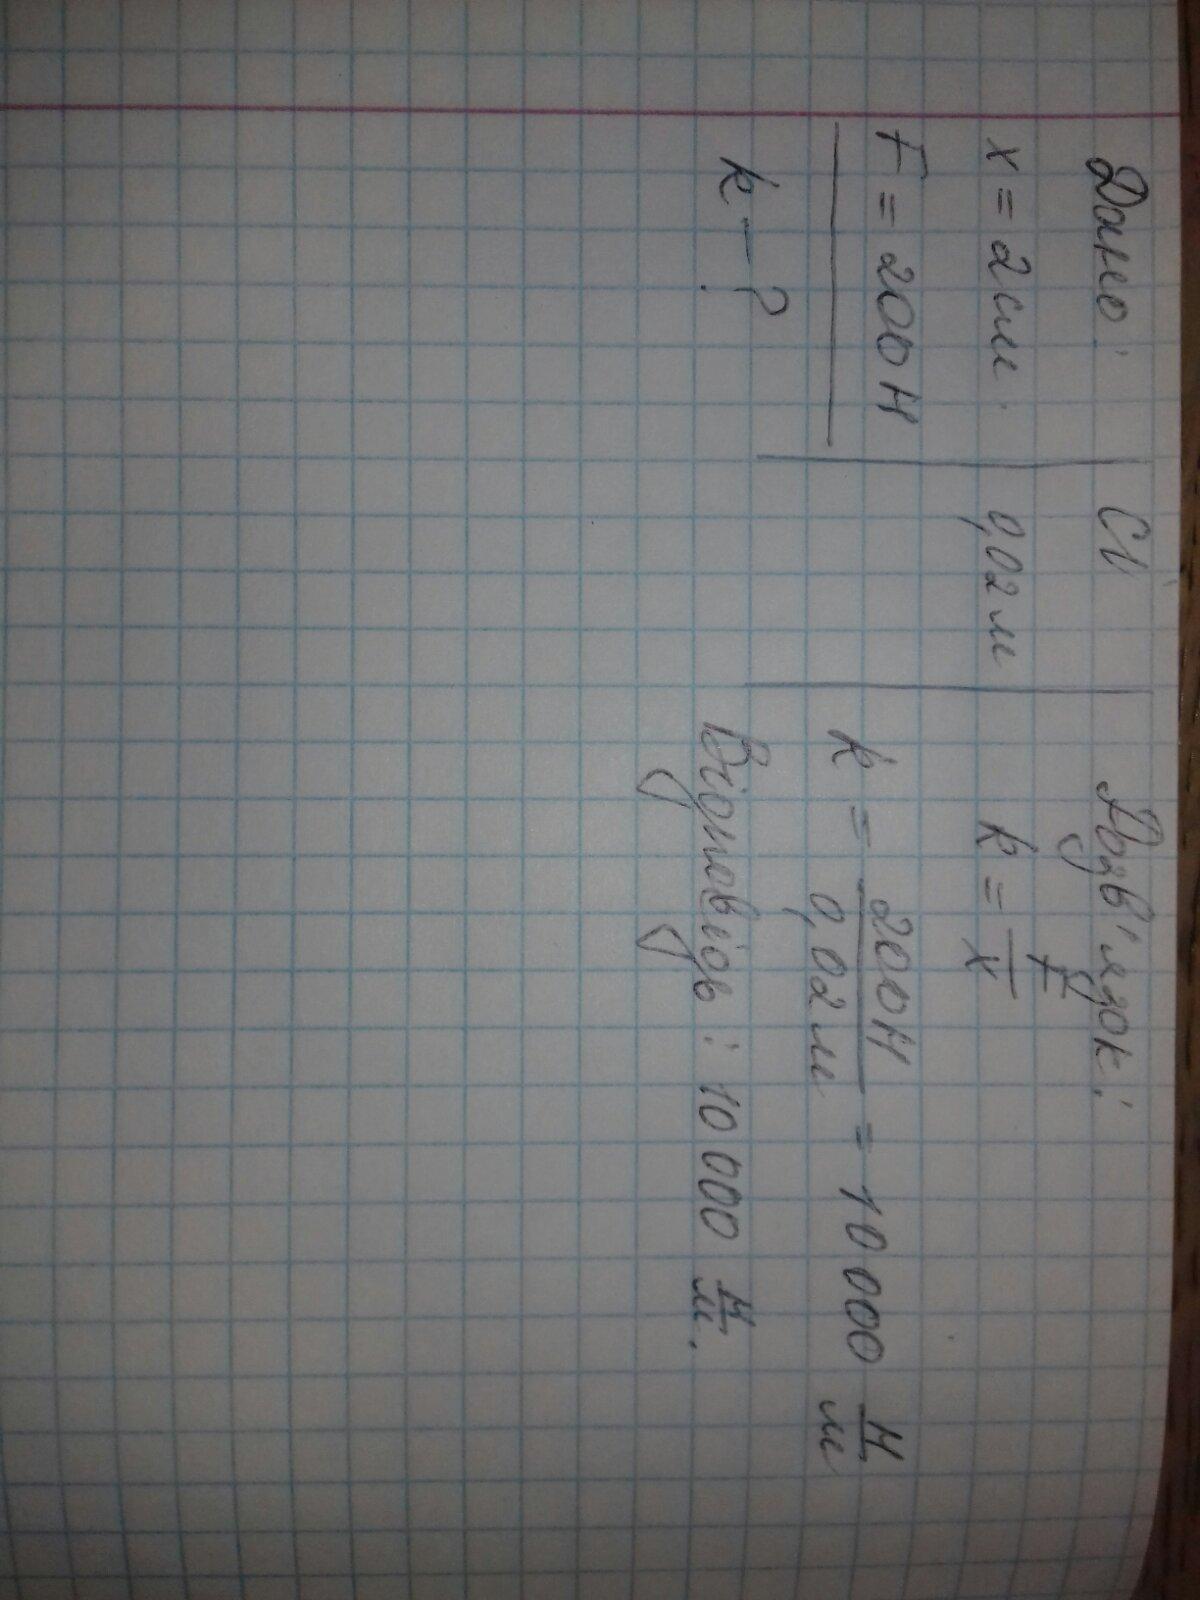 Дано:
x = 2см
F = 200 Н
k - ?
СІ
0,02 м
Розв'язок:
k = F/x
k = 200Н/0,02м = 10 000 Н/м
Відповідь: 10 000 Н/м.